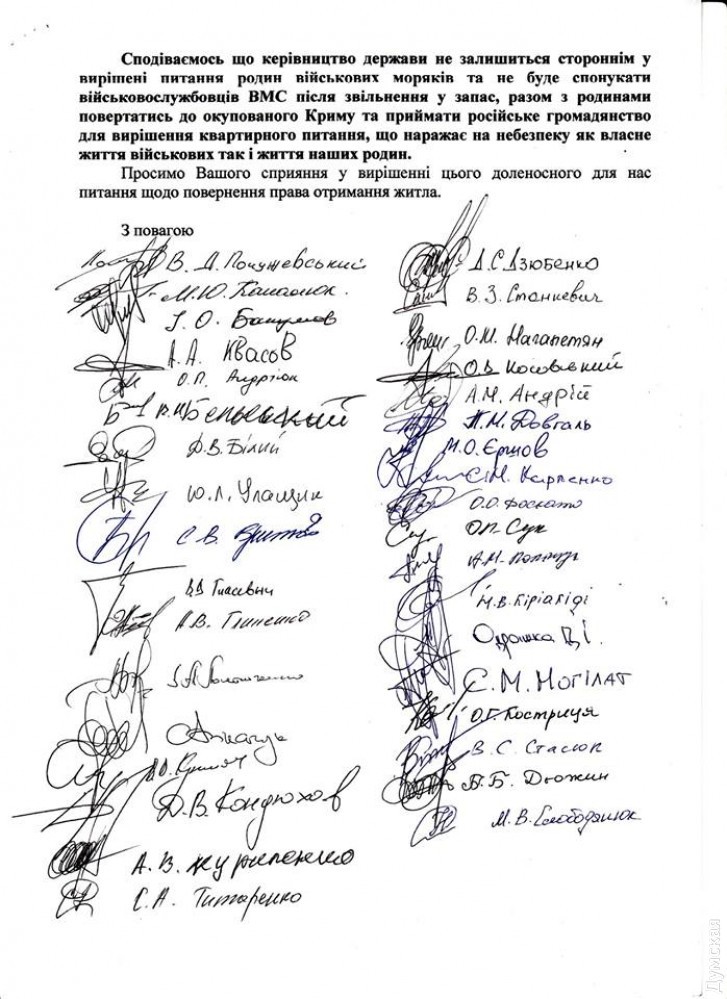 Сподіваємось що керівництво держави не залишиться стороннім у
вирішені питання родин військових моряків та не буде спонукати
військовослужбовців ВМС після звільнення у запас, разом з родинами
повертатись до окупованого Криму та приймати російське громадянство
для вирішення квартирного питання, що наражає на небезпеку як власне
життя військових так і життя наших родин.
Просимо Вашого сприяння у вирішенні цього доленосного для нас
питання щодо повернення права отримання житла.
З повагою
В. Д.
М.Ю.
І. О.
А. А. Квасов
О.П. Андріюк
Д.В. Білий
Ю.Л. Улащик
С. В.
А.В. Глиненко
Д.В. Кондюхов
А. В.
С.А. Титаренко
Д.С. Дзюбенко
В. З. Станкевич
О.М. Магапетян
О.В. Косовський
А.М. Андрій
П.М. Довгаль
М.О. Єршов
Є.М. Карпенко
О.О.
О.П. Сук
А.М.
Н.В. Кіріакіді
Одрашка
Є. М. Могілат
О.Г. Костриця
В. С. Стасюк
П.Б. Дюжин
М. В. Слободянюк
Думская